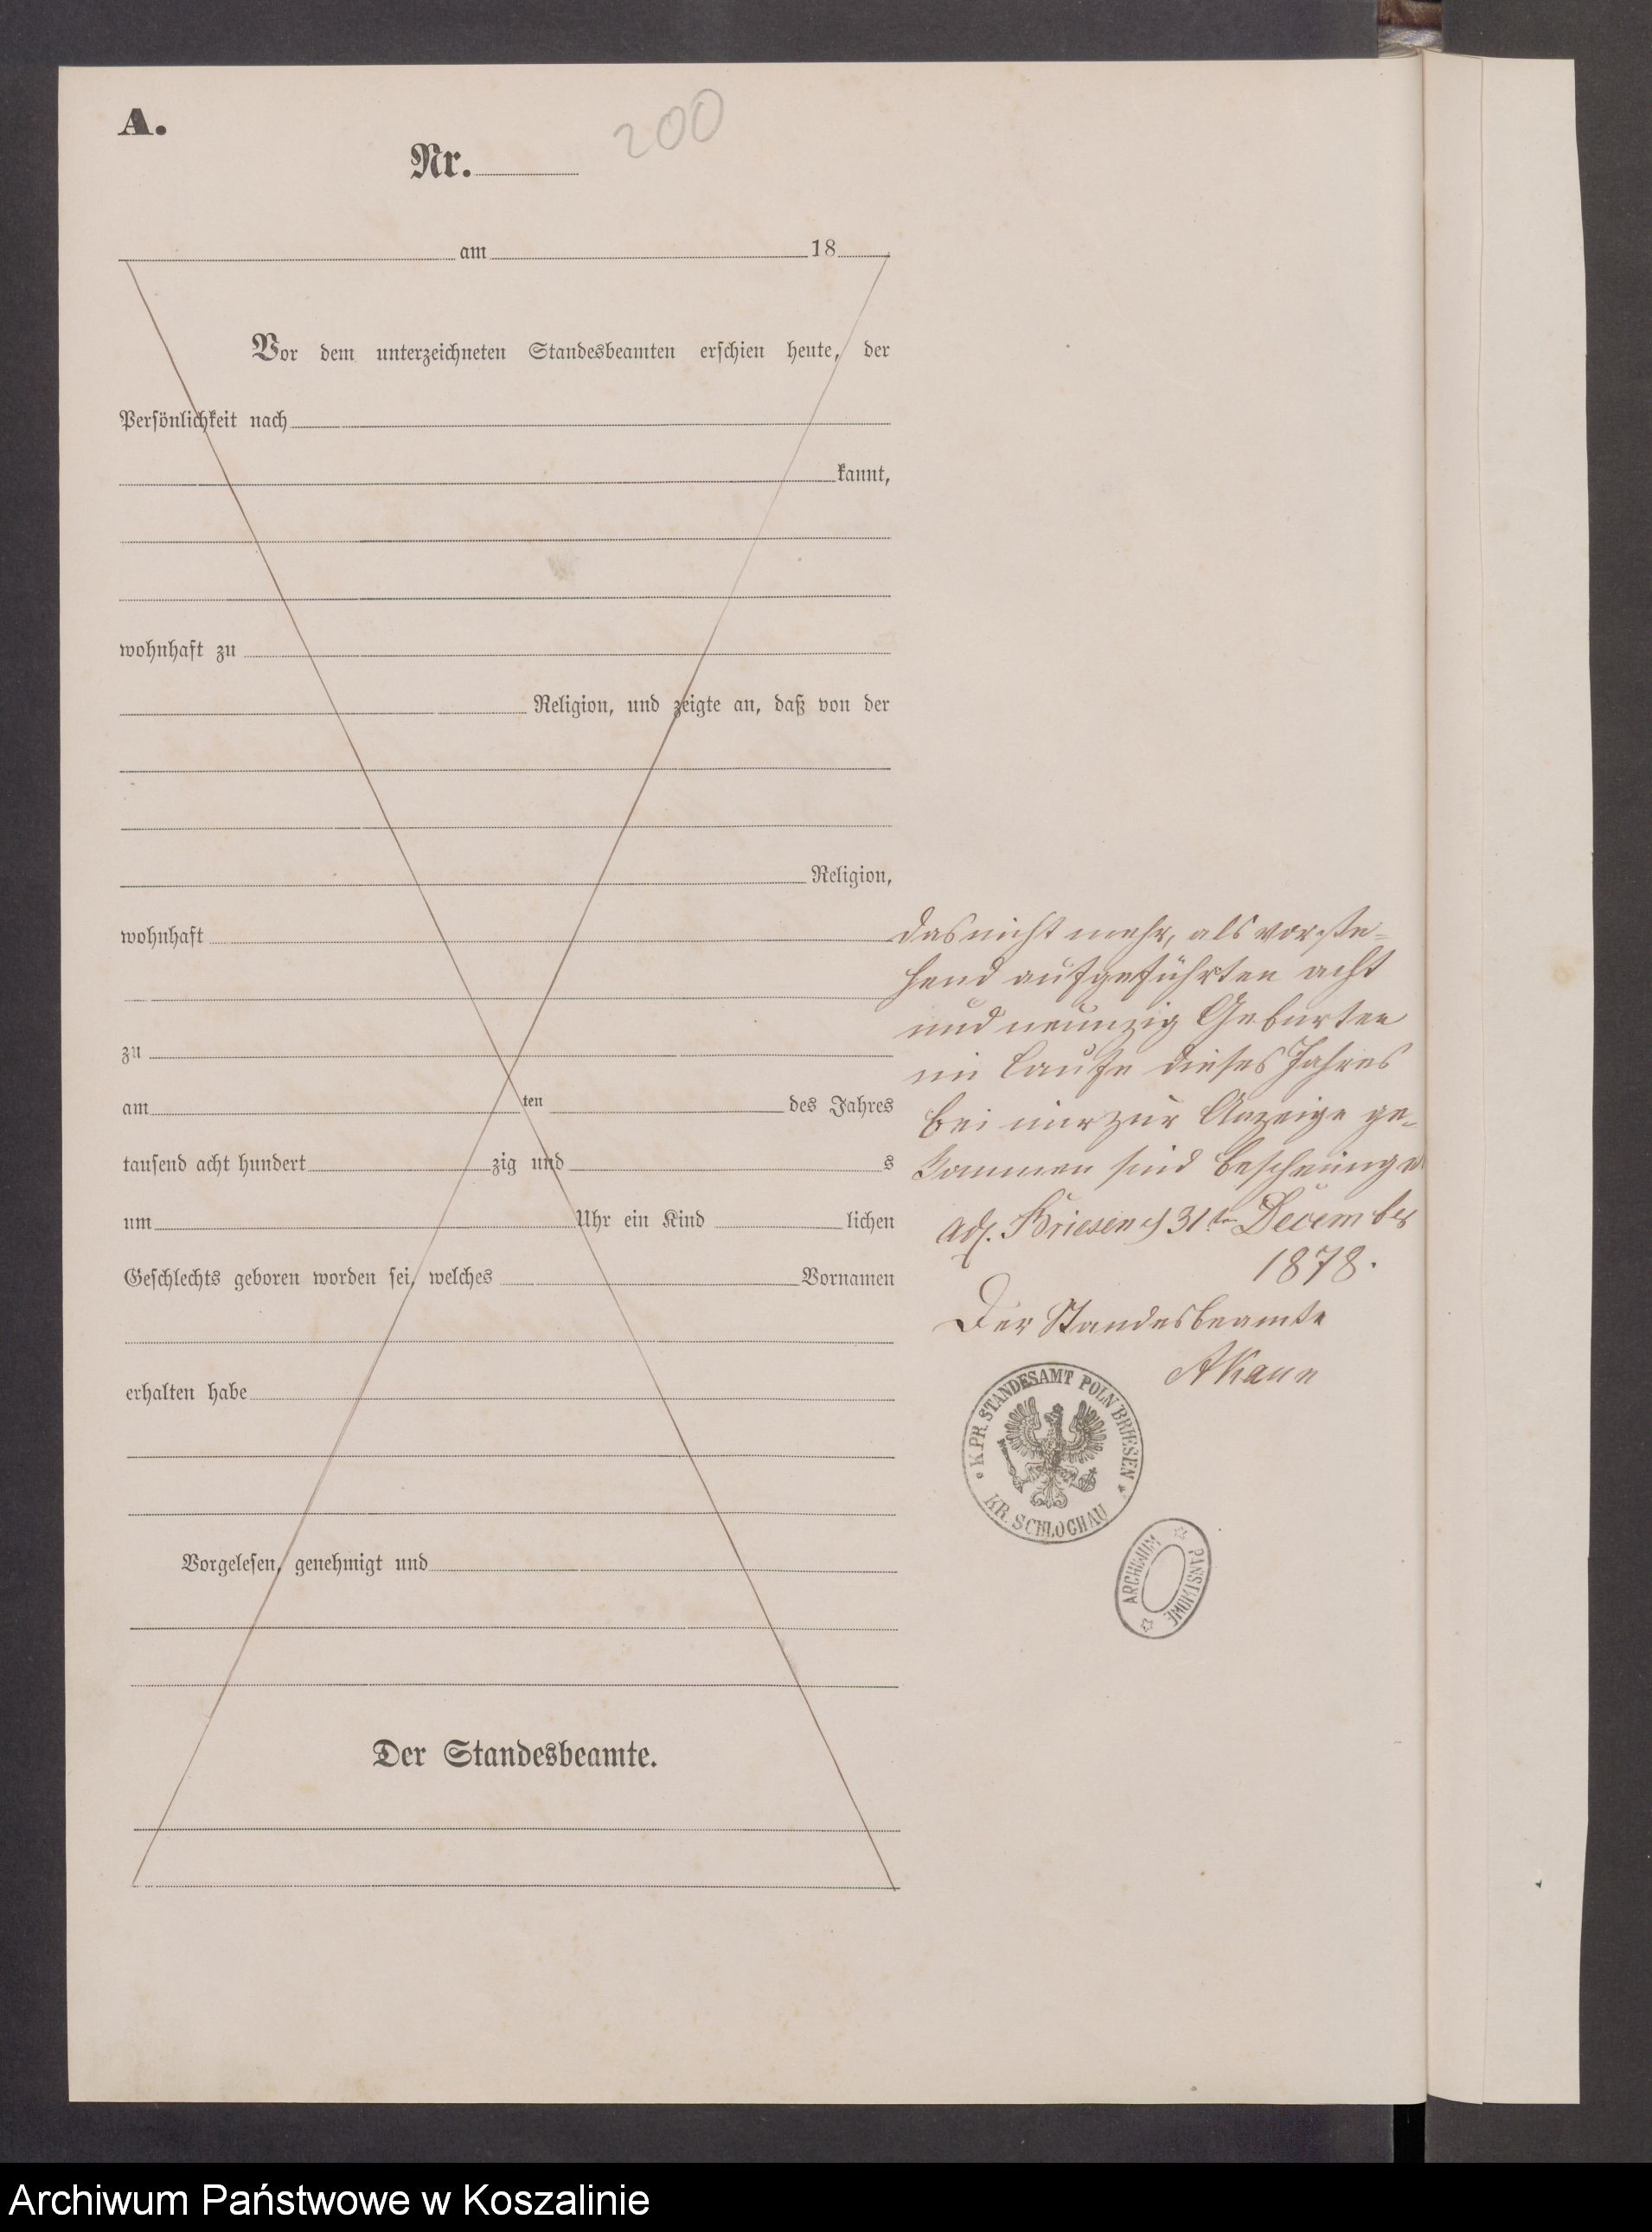 A.
200
Nr.
am 18
Vor dem unterzeichneten Standesbeamten erschien heute, der
Persönlichkeit nach
kannt,
wohnhaft zu
Religion, und zeigte an, daß von der
Religion,
wohnhaft
zu
am ten des Jahres
tausend acht hundert zig und s
um Uhr ein Kind lichen
Geschlechts geboren worden sei, welches Vornamen
erhalten habe
Vorgelesen, genehmigt und
Der Standesbeamte.
Das nicht mehr, als vorste-
hend aufgeführten acht
und neunzig Geburten
im Laufe dieses Jahres
bei mir zur Anzeige ge-
kommen sind bescheinigt
Briesen 31ten December
1878.
Der Standesbeamte
AKann
K. PR. STANDESAMT POLN BRIESEN
KR. SCHLOCHAU
ARCHIWUM PAŃSTWOWE
Archiwum Państwowe w Koszalinie